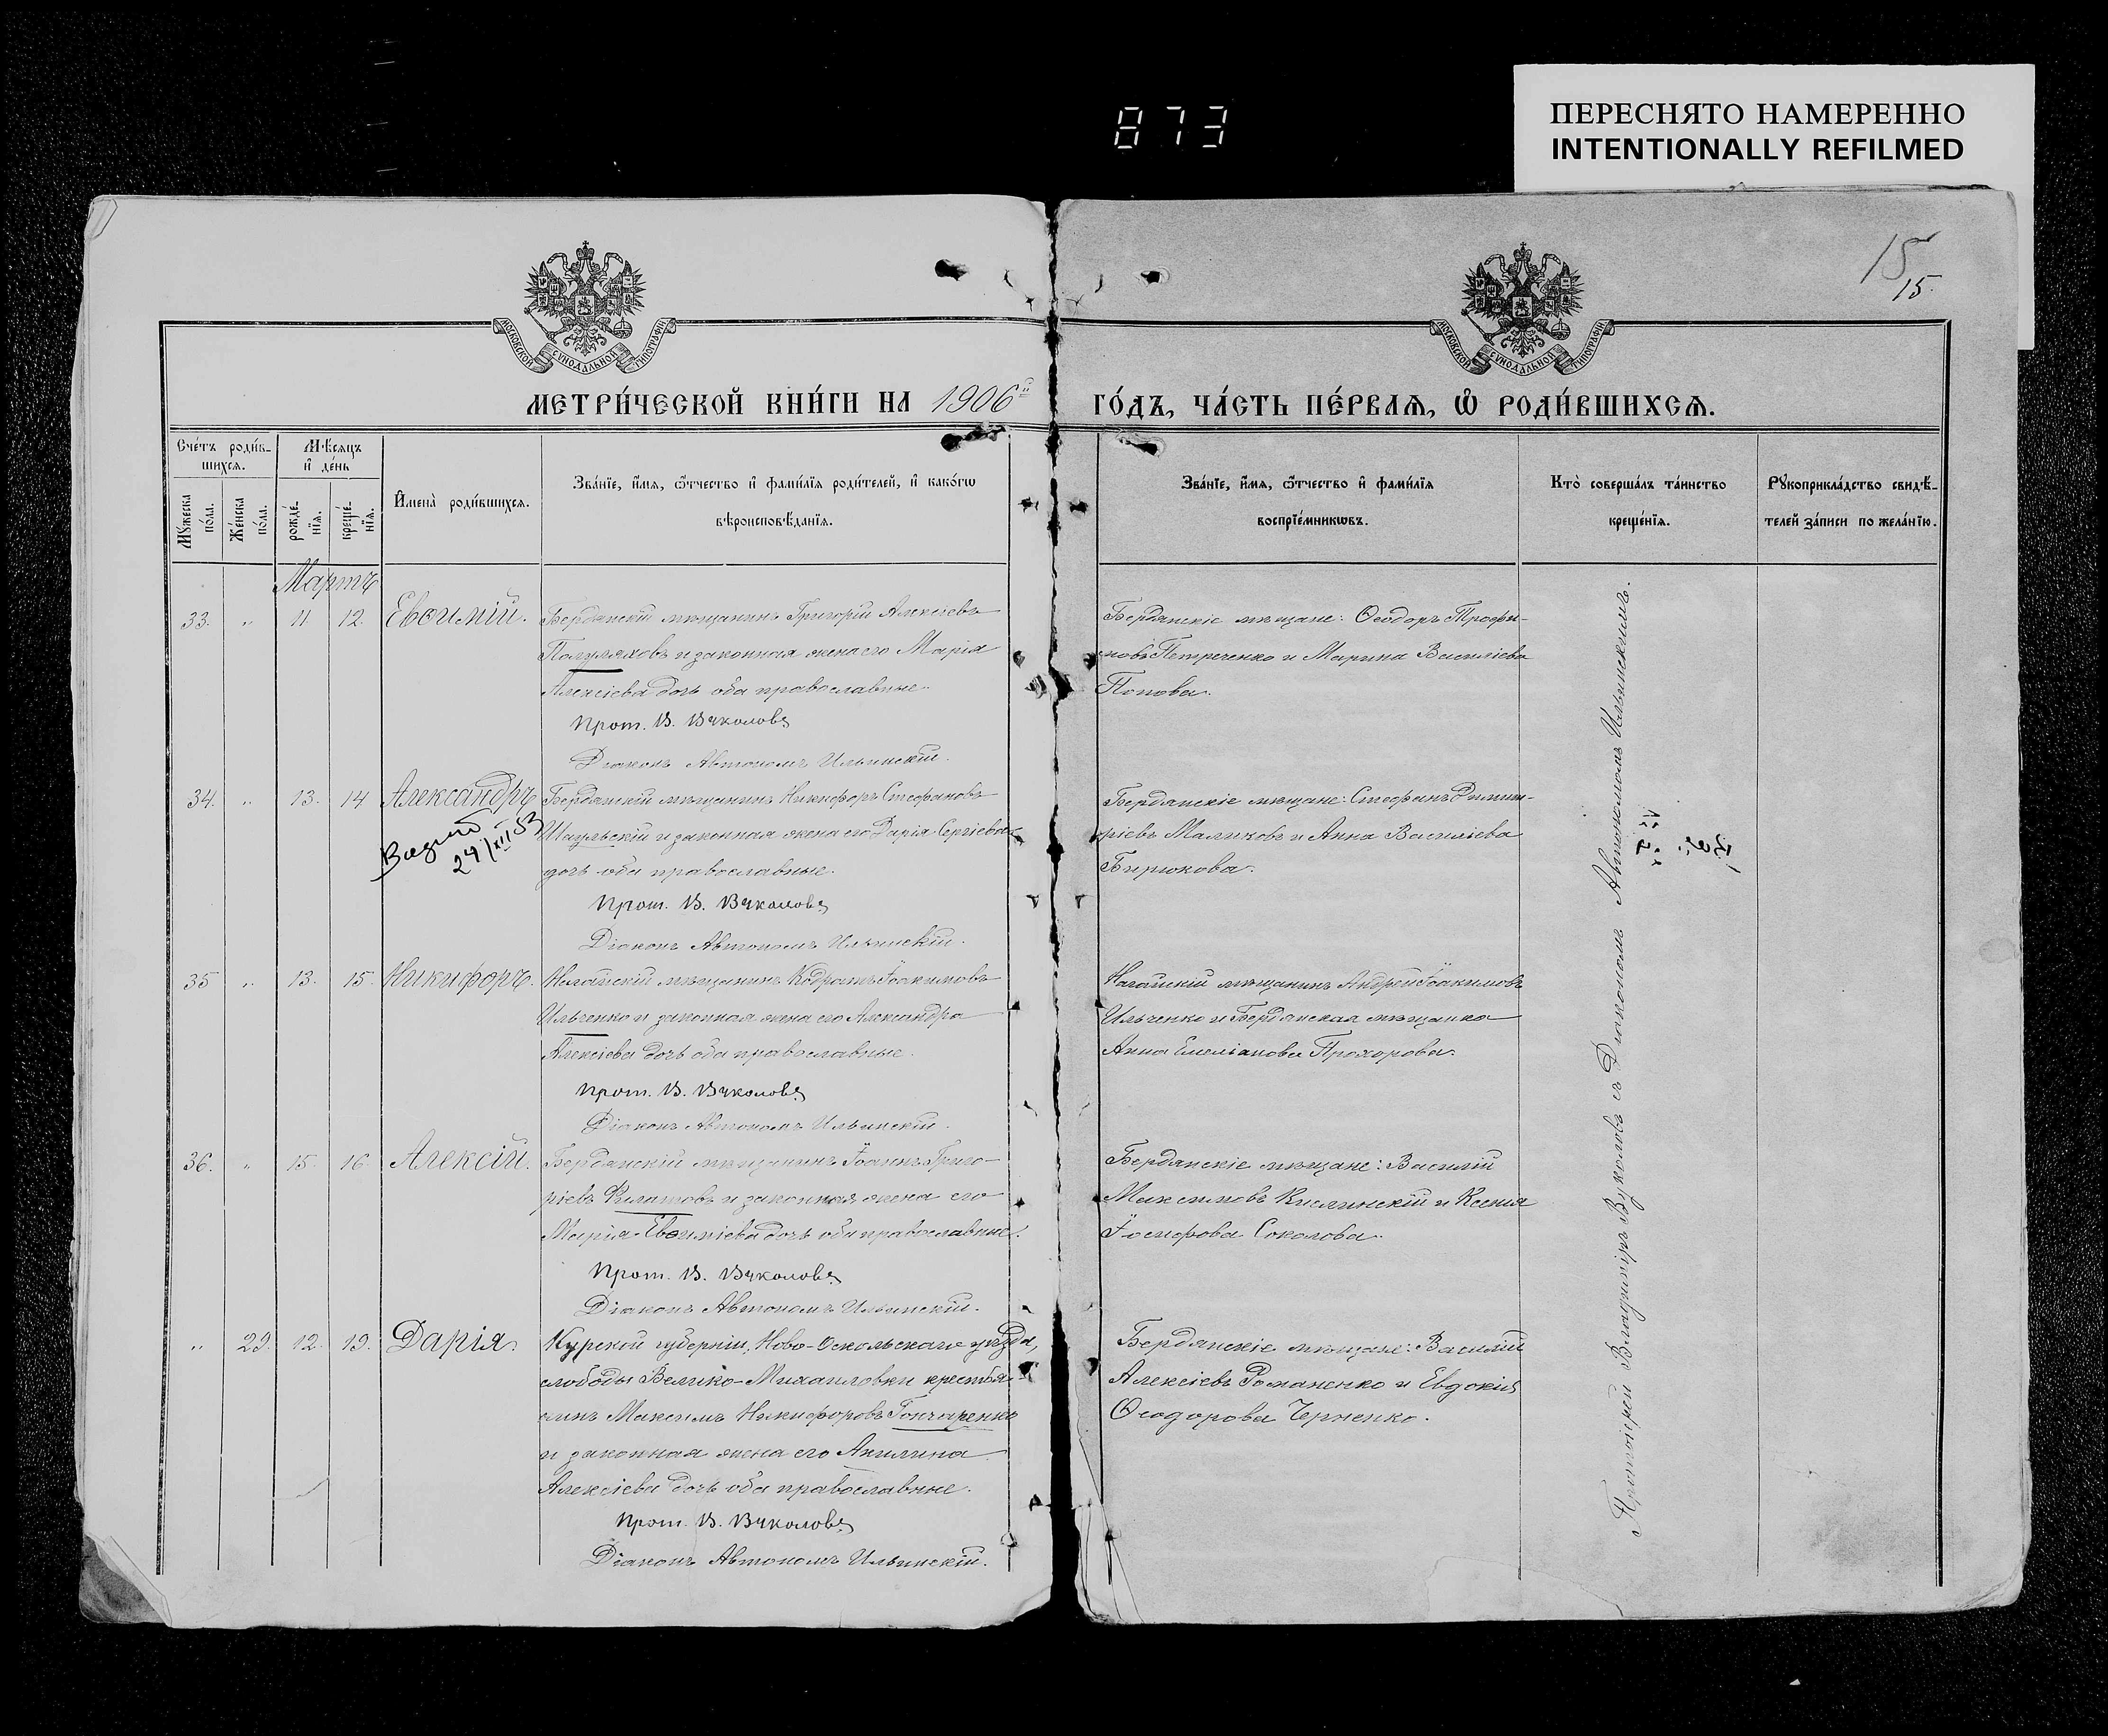 873
ПЕРЕСНЯТО НАМЕРЕННО
INTENTIONALLY REFILMED
15
15.
МОСКОВСКОЙ СУНОДАЛЬНОЙ ТИПОГРАФІИ
МОСКОВСКОЙ СУНОДАЛЬНОЙ ТИПОГРАФІИ
МЕТРИ́ЧЕСКОЙ КНИ́ГИ НА 1906й ГО́ДЪ, ЧА́СТЬ ПЕ́РВАѦ, Ѡ РОДИ́ВШИХСѦ.
Сче́тъ роди́в-
шихсѧ.
Мꙋжеска по́ла.
Же́нска по́ла.
Мѣ́сѧцъ
и де́нь
рожде́-
нїѧ.
креще́-
нїѧ.
Имена̀ роди́вшихсѧ.
Зва́нїе, и́мѧ, ѻ҆́тчество и҆ фами́лїѧ роди́телей, и҆ како́гѡ
вѣроисповѣ́данїѧ.
Зва́нїе, и́мѧ, ѻ҆́тчество и҆ фами́лїѧ
воспрїе́мникѡвъ.
Кто̀ соверша́лъ та́инство
креще́нїѧ.
Рꙋкоприкла́дство свидѣ́-
телей за́писи по жела́нїю.
Мартъ
33. „ 11 12. Евѳимій.
Бердянскій мѣщанинъ Григорій Алексіевъ
Полуляховъ и законная жена его Марія
Алексіева дочь оба православные.
Прот. В. Вуколовъ
Діаконъ Автономъ Ильинскій.
Бердянскіе мѣщане: Ѳеодоръ Трофи-
мовъ Петреченко и Марина Василіева
Попова.
34. „ 13. 14 Александръ
24/XII 53
Бердянскій мѣщанинъ Никифоръ Стефановъ
Шаульскій и законная жена его Дарія Сергіева
дочь оба православные.
Прот. В. Вуколовъ
Діаконъ Автономъ Ильинскій.
Бердянскіе мѣщане: Стефанъ Димит-
ріевъ Маликовъ и Анна Василіева
Бирюкова.
35 „ 13. 15. Никифоръ.
Ногайскій мѣщанинъ Кодратъ Іоакимовъ
Ильченко и законная жена его Александра
Алексіева дочь оба православные.
Прот. В. Вуколовъ
Діаконъ Автономъ Ильинскій.
Ногайскій мѣщанинъ Андрей Іоакимовъ
Ильченко и Бердянская мѣщанка
Анна Емеліанова Прохорова.
36. „ 15. 16 Алексій.
Бердянскій мѣщанинъ Іоаннъ Григо-
ріевъ Филатовъ и законная жена его
Марія Евѳиміева дочь оба православные.
Прот. В. Вуколовъ
Діаконъ Автономъ Ильинскій.
Бердянскіе мѣщане: Василій
Максимовъ Кислинскій и Ксенія
Іосифова Соколова.
„ 29. 12. 19. Дарія.
Курской губерніи, Ново-Оскольскаго уѣзда,
слободы Велико-Михайловки крестья-
нинъ Максимъ Никифоровъ Гончаренко
и законная жена его Акилина
Алексіева дочь оба православные.
Прот. В. Вуколовъ
Діаконъ Автономъ Ильинскій.
Бердянскіе мѣщане: Василій
Алексіевъ Романенко и Евдокія
Ѳеодорова Черненко.
Протоіерей Владиміръ Вуколовъ съ Діакономъ Автономомъ Ильинскимъ.